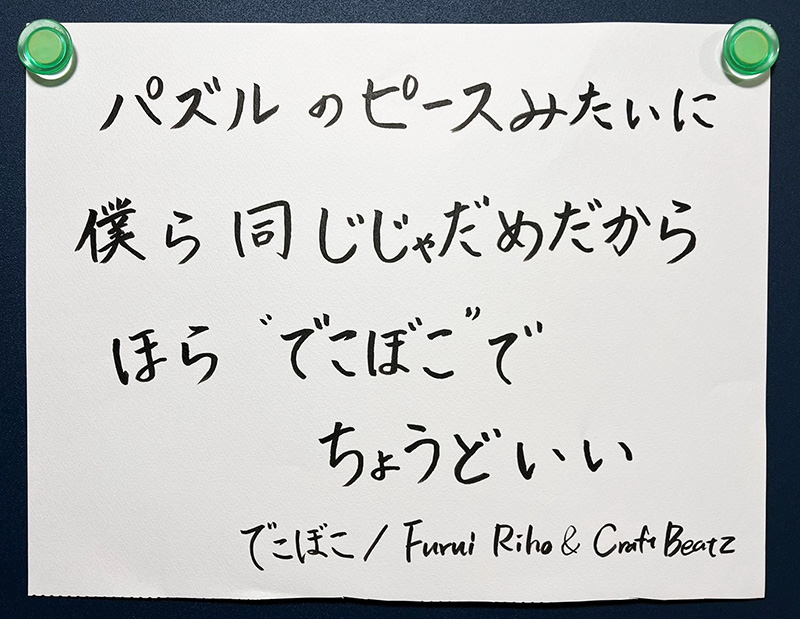 パズルのピースみたいに
僕ら同じじゃだめだから
ほら“でこぼこ”で
ちょうどいい
でこぼこ / Furui Riho & Craft Beatz